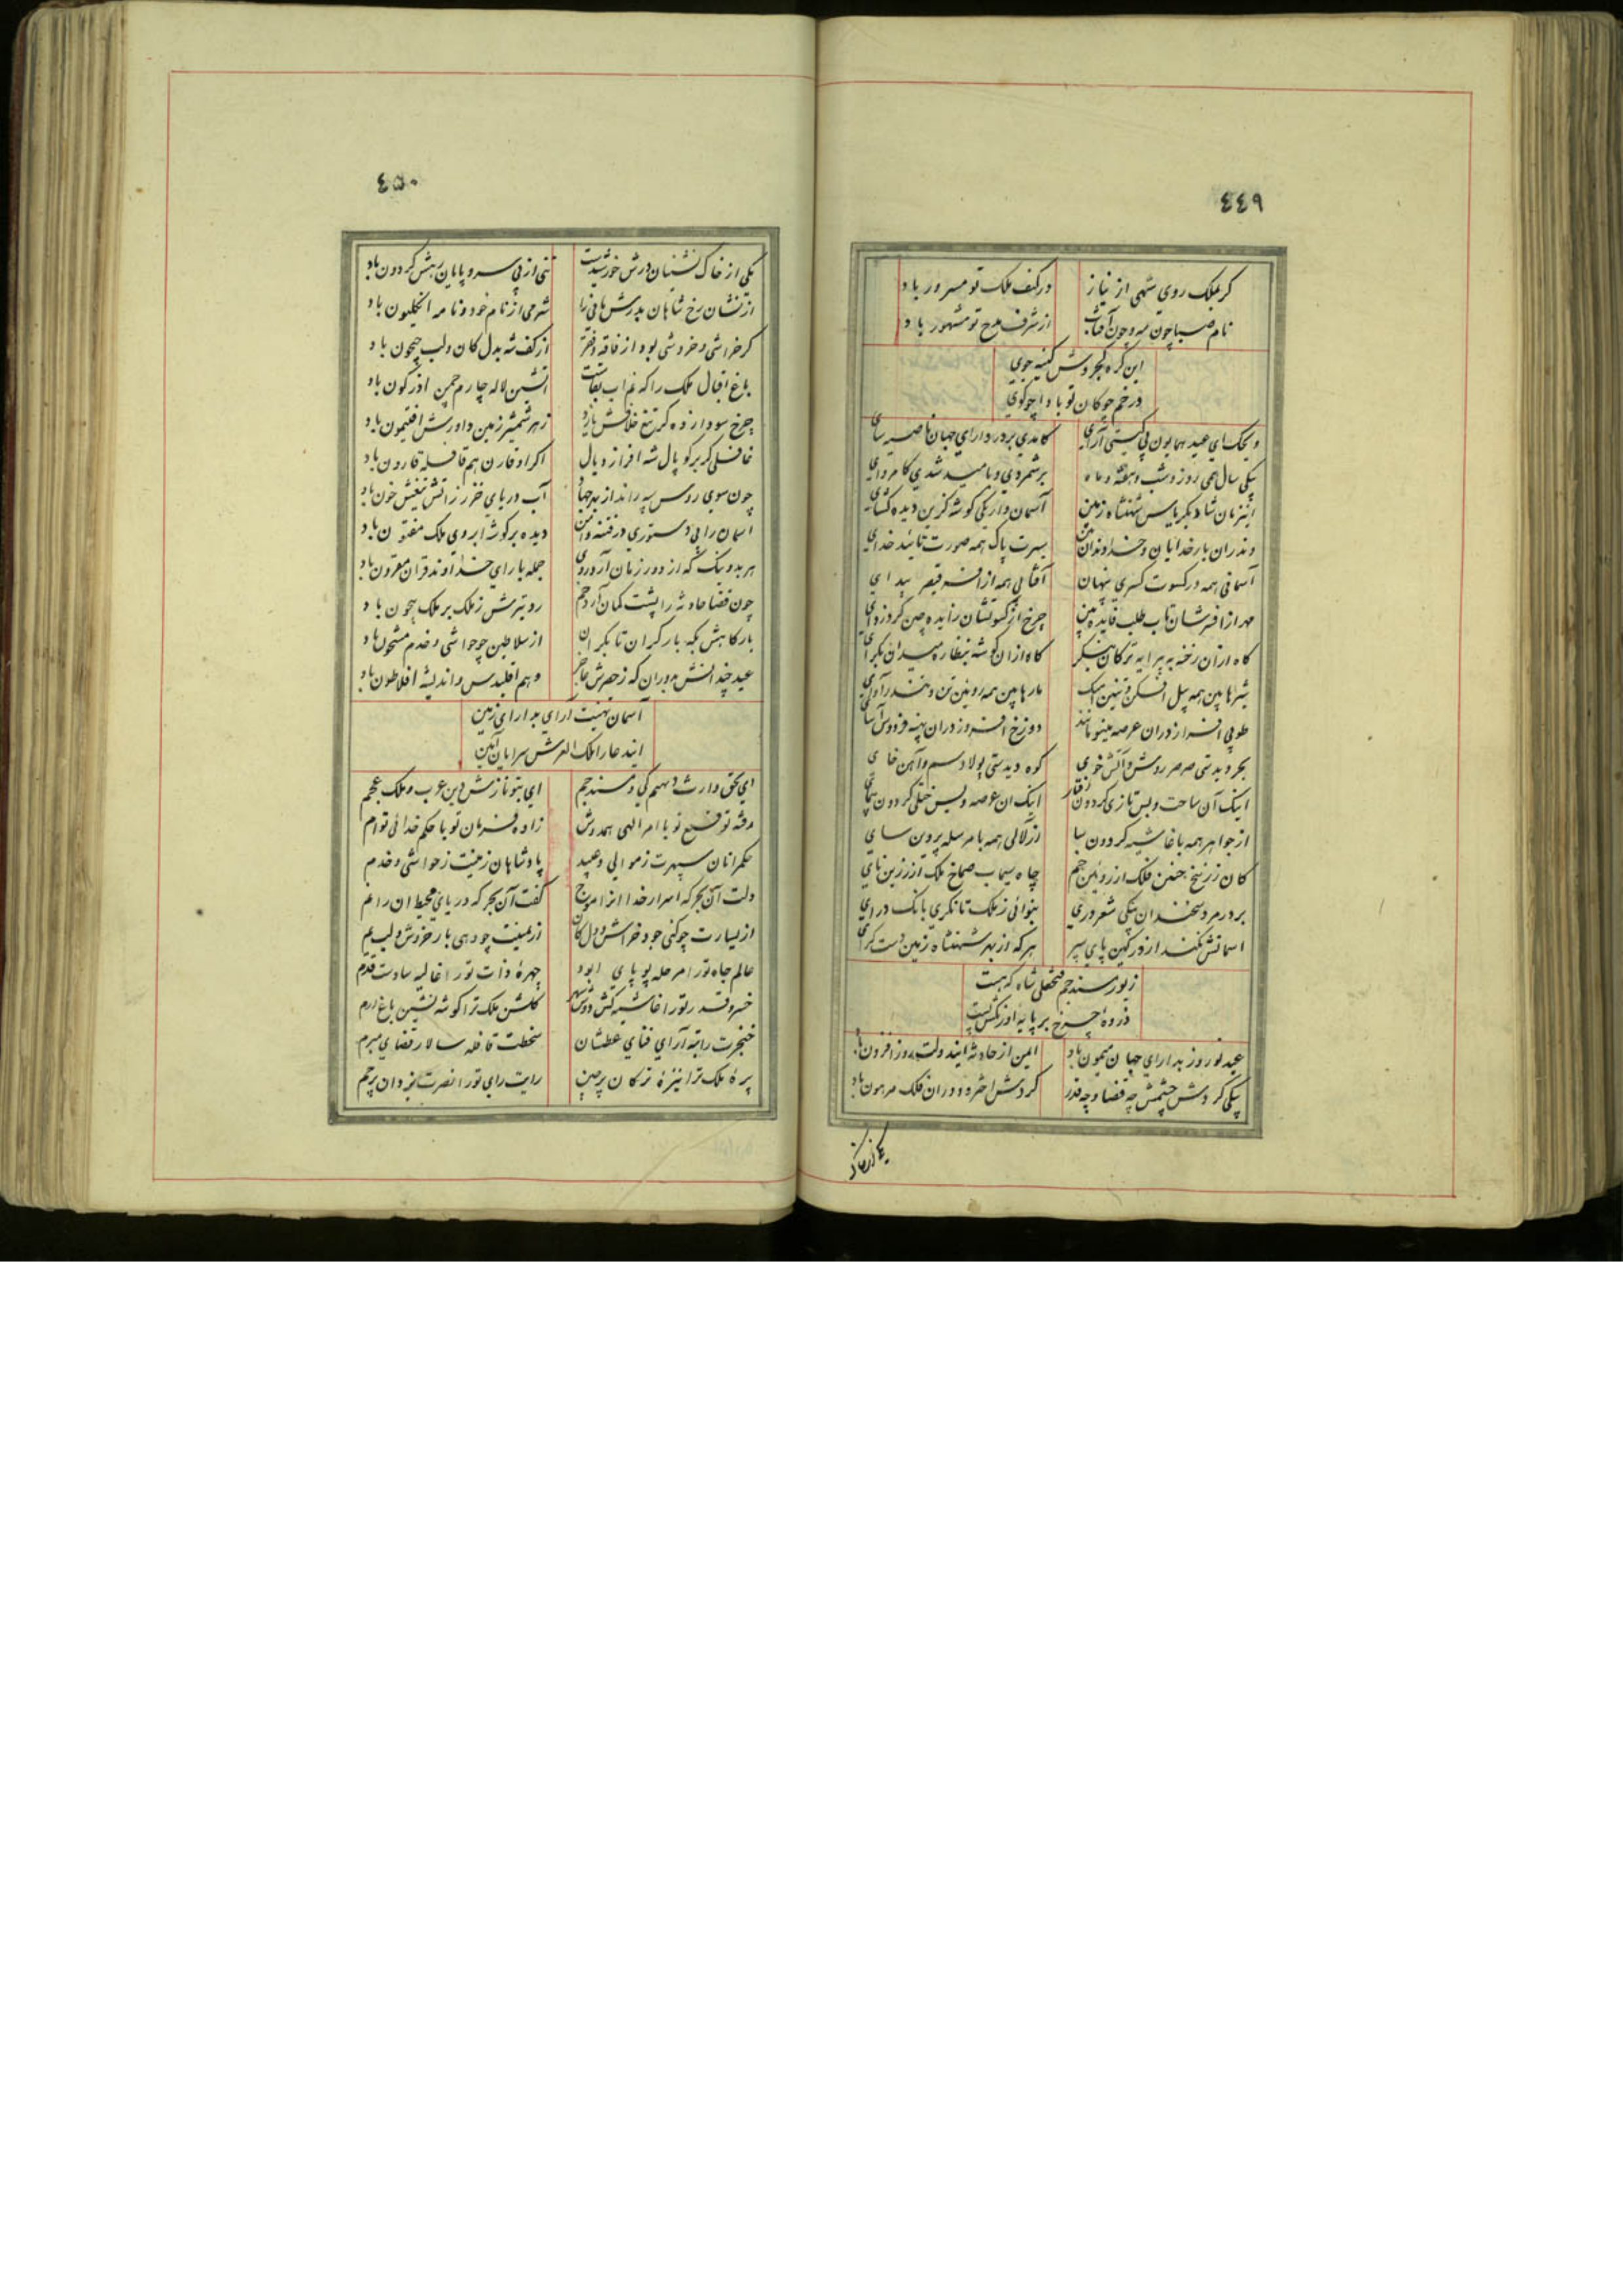 ٤٤٩
کر بملک روی شهی از نیاز در کنف ملک تو مسرور باد
نام صبا چون مه و چون آفتاب از شرف مدح تو مشهور باد
این کره کجروش کینه جوی
در خم چوکان تو بادا چو کوی
ویحک ای عید همایون پی کیتی آرای کامدی بر در دارای جهان ناصیه سای
یکی سال همی روز و شب و هفته و ماه برشمردی و بامید شدی کامروای
آسمان وار یکی کوشه کزین دیده کشای
وندران بار خدایان و خداوندان بین بسرت پاک همه صورت تائید خدای
آسمانی همه در کسوت کسری پنهان آفتابی همه از افسر قیصر پیدای
مهر از افسرشان تاب طلب
شیرها بین همه پیل افکن و تنین آهنک مارها بین همه روئین تن و
طوبی افراز دران عرصه مینو مانند دوزخ افروز دران پهنه فردوس آسای
بحر دیدستی صرصر روش و آتش خوی کوه دیدستی پولاد سم و آهن خای
اینک آن ساحت و بس تازی کردون رفتار اینک ان عرصه و بس ختلی کردون پیمای
از جواهر همه با غاشیه کردون سا از لآلی همه با مرسله پروین سای
کان زرنیخ فلک از روئین خم چاه سیماب صماخ ملک از زرین نای
بر در مرد سخندان یکی شعر دری بنوائی ز ملک تا نکری بانک درای
اسمانش نکند از در کهین پای سپر هر که از بهر شهنشاه زمین دست کرای
زیور مسند جم فتحعلی شاه که هست
ذروهٔ چرخ بر پایهٔ اورنکش پست
عید نوروز بدارای جهان میمون باد ایمن از حادثه ایندولت روز افزون باد
یکی کردش چشمش چه قضا و چه قدر کردش اختر و دوران فلک مرهون باد
یکی از خاک
٤٥٠
یکی از خاک نشینان درش خورشیدست تنی از بی سر و پایان رهش کردون باد
از نشان رخ شاهان بدرش مانی را شرمی از نام خود و نامه انکلیون باد
کر خراشی و خروشی بود از فاقه و فقر از کف شه بدل کان و لب جیحون باد
باغ اقبال ملک را که نم اب بقاست اتشین لاله چارم چمن اذرکون باد
چرخ سودا زده کر تیغ خلافش یازد زهر شمشیر زمین داورش افتیمون باد
غافلی کر بر کوپال شه افرازد یال اکر او قارن هم قافله قارون باد
چون سوی روس سپه راند از بهر جهاد آب دریای خزر ز اتش تیغش خون باد
اسمان را پی دستوری در فتنه و امن دیده بر کوشه ابروی ملک مفتون باد
هر بد و نیک که از دور زمان آرد روی جمله با رای خداوند قران مقرون باد
چون قضا حادثه را پشت کمان آرد خم رد تیرش ز ملک بر ملک بیچون باد
بارکاهش بکه بار کران تا بکران از سلاطین چو حواشی و خدم مشحون باد
عید چندانش بدوران که ز حصرش عاجز وهم اقلیدس و اندیشه افلاطون باد
آسمان تهنیت آرای بدارای زمین
ایندعا را ملک العرش سرایان آمین
ای بحق وارث دیهیم کی و مسند جم ای بتو نازش دین عرب و ملک عجم
وقفه توقیع تو با امر الهی همدوش زاده فرمان تو با حکم خدائی توام
حکمرانان سپهرت ز موالی و عبید پادشاهان زمینت ز حواشی و خدم
دلت آن بحر که اسرار خدا انرا موج کفت آن بحر که دریای محیط ان را نم
از یسارت چو کنی جود خراش دل کان از یمینت چو دهی بار خروش لب یم
عالم جاه تو را مرحله پویای ابد چهرهٔ ذات تو را غالیه سا دست قدم
خسرو قدر تو را غاشیه کش دوش سپهر کلشن ملک ترا کوشه نشین باغ ارم
خنجرت راتبه آرای فنای عطشان سخطت قافله سالار قضای مبرم
پرهٔ ملک ترا نیزهٔ ترکان پرچین رایت رای تو را نصرت یزدان پرچم